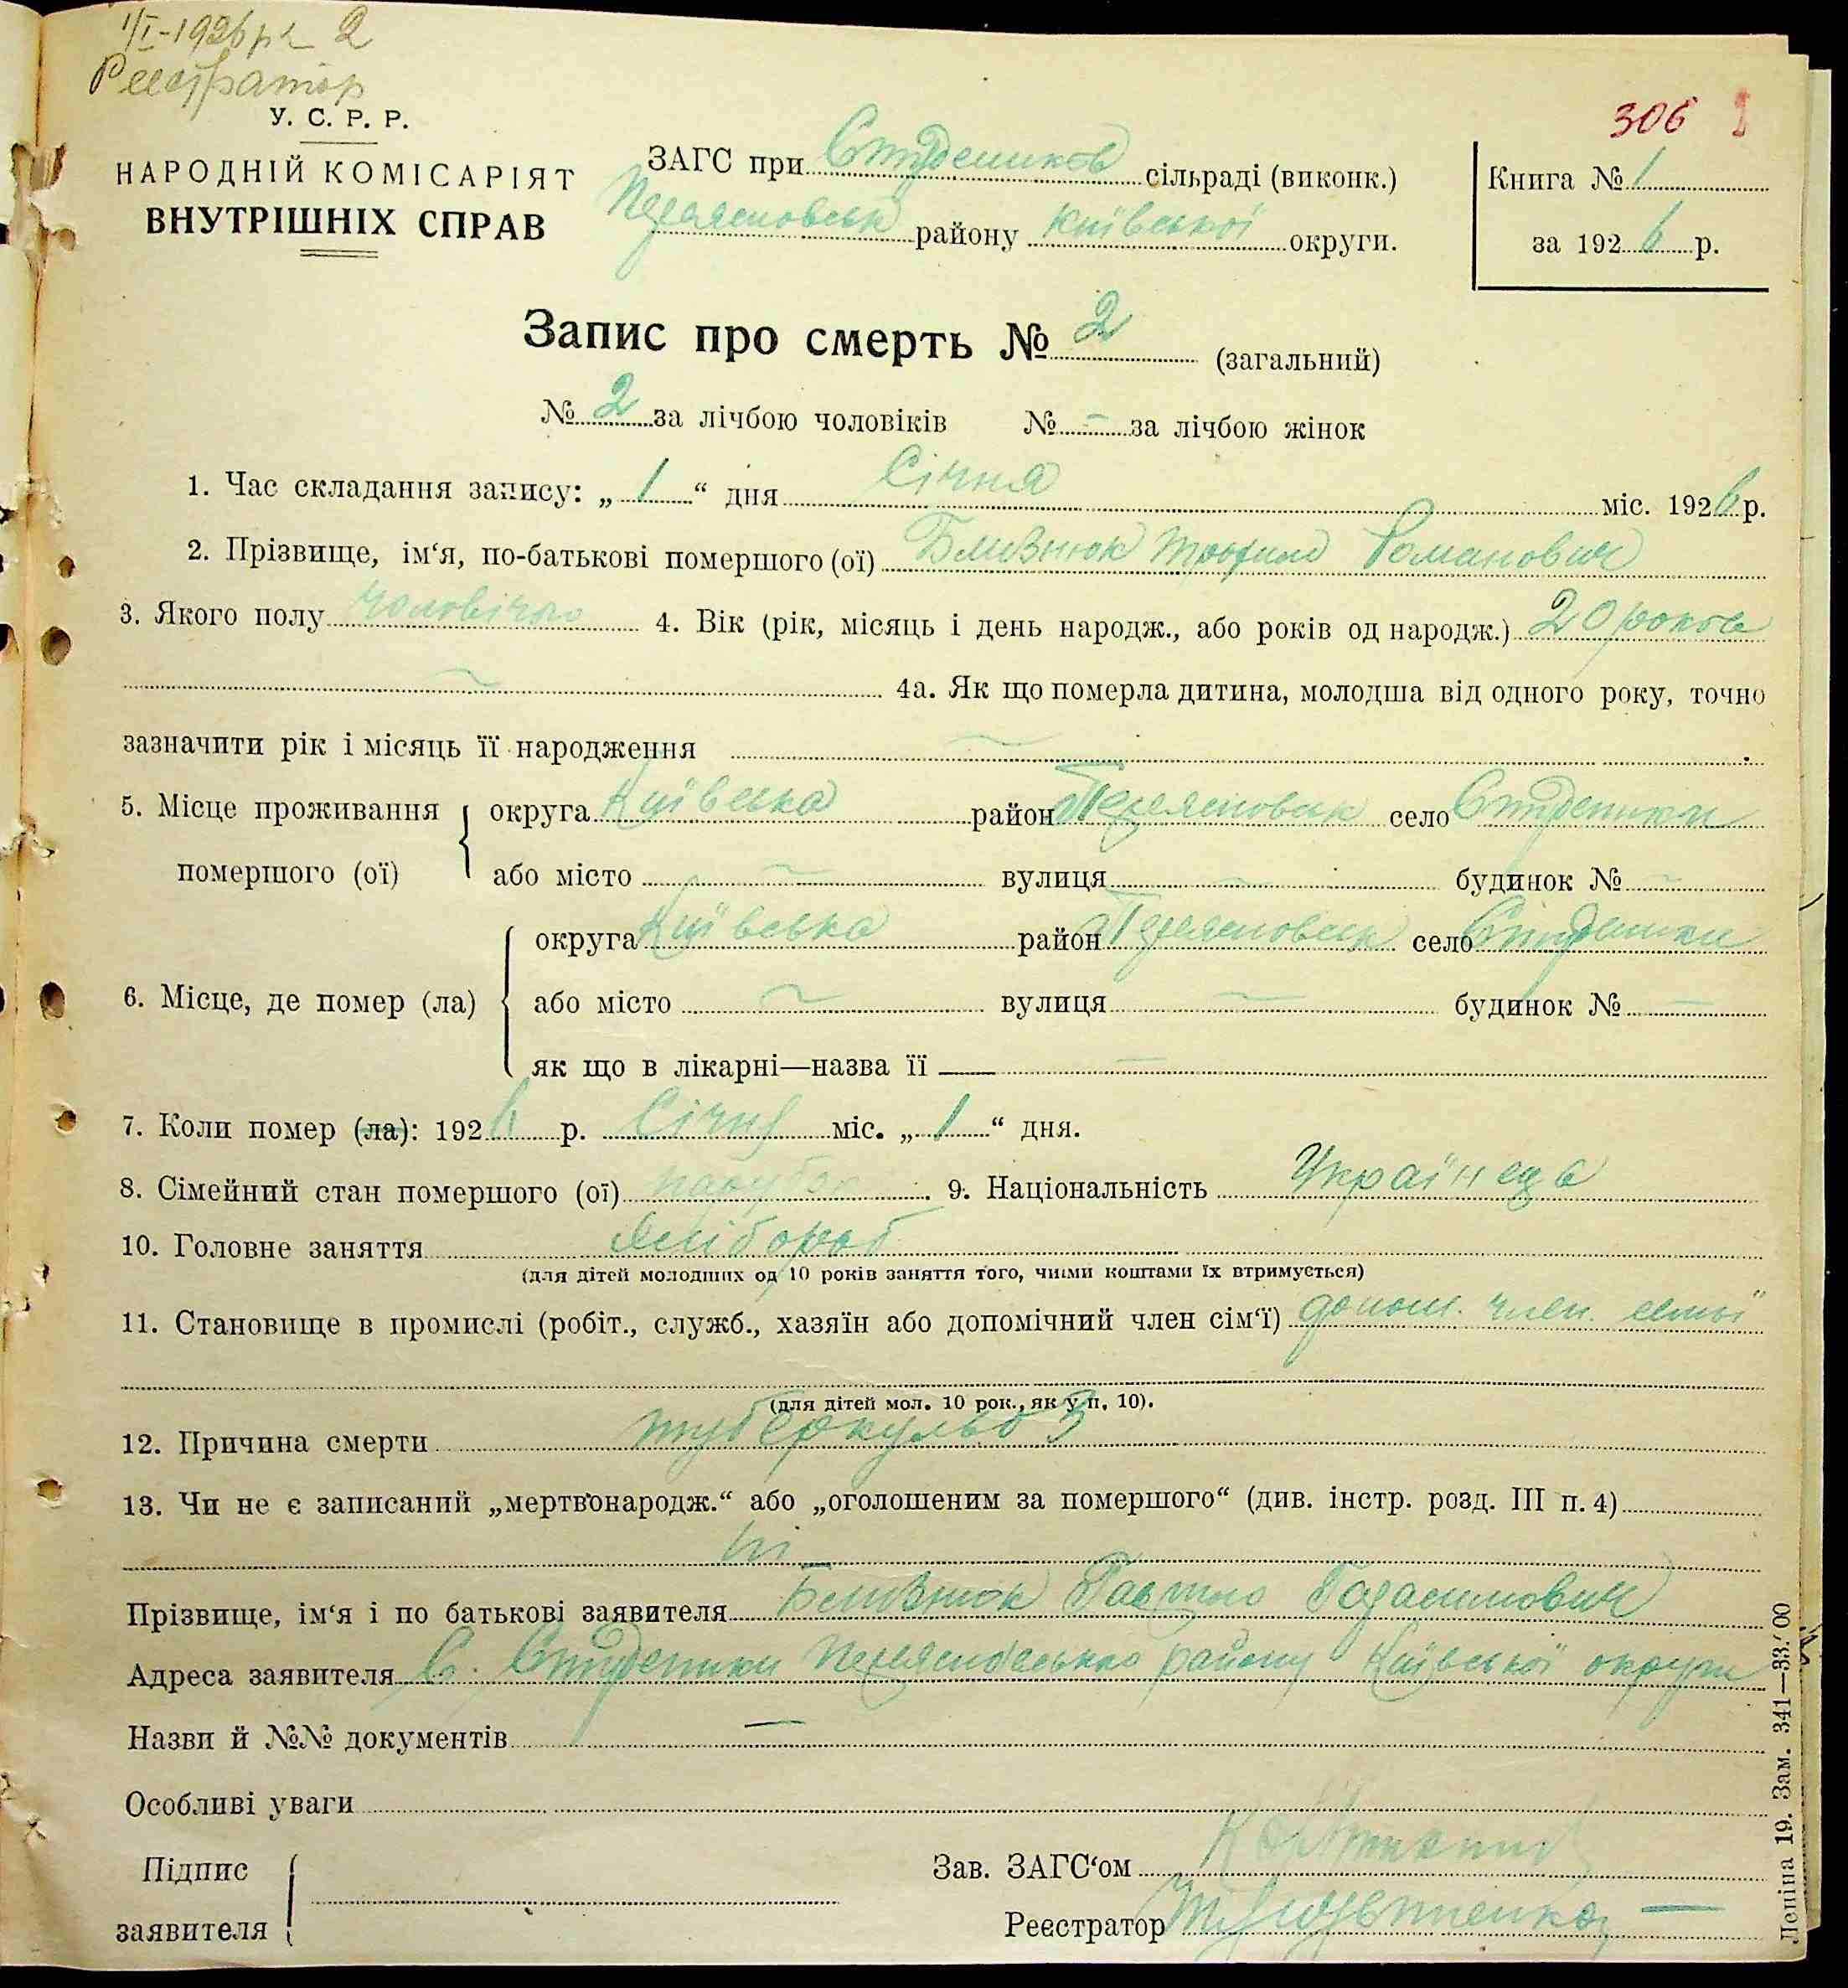 1/I-1926 р. № 2
Реєстратор
У. С. Р. Р.
НАРОДНІЙ КОМІСАРІЯТ
ВНУТРІШНІХ СПРАВ
ЗАГС при Студеников сільраді (виконк.)
Переясловськ району Київської округи.
306
Книга № 1
за 1926 р.
Запис про смерть № 2 (загальний)
№ 2 за лічбою чоловіків № - за лічбою жінок
1. Час складання запису: „ 1 “ дня Січня міс. 1926 р.
2. Прізвище, ім‘я, по-батькові помершого (ої) Близнюк Трохим Романович
3. Якого полу чоловічого 4. Вік (рік, місяць і день народж., або років од народж.) 20 роков
4а. Як що померла дитина, молодша від одного року, точно
зазначити рік і місяць її народження
5. Місце проживання помершого (ої) округа Київська район Переясловськ село Студеники
або місто вулиця будинок №
6. Місце, де помер (ла) округа Київська район Переясловськ село Студеники
або місто вулиця будинок №
як що в лікарні—назва її —
7. Коли помер (ла): 1926 р. Січня міс. „ 1 “ дня.
8. Сімейний стан помершого (ої) парубок 9. Національність Українець
10. Головне заняття хлібороб
(для дітей молодших од 10 років заняття того, чиїми коштами їх втримується)
11. Становище в промислі (робіт., служб., хазяїн або допомічний член сім‘ї) допом. член. семьї
(для дітей мол. 10 рок., як у п. 10).
12. Причина смерти туберкульоз
13. Чи не є записаний „мертвонародж.“ або „оголошеним за помершого“ (див. інстр. розд. III п. 4)
ні
Прізвище, ім‘я і по батькові заявителя Близнюк Павло Гарасимович
Адреса заявителя С. Студеники Переясловського району Київської округи
Назви й №№ документів —
Особливі уваги
Підпис
заявителя
Зав. ЗАГС‘ом
Реєстратор
Леніна 19. Зам. 341—33.00